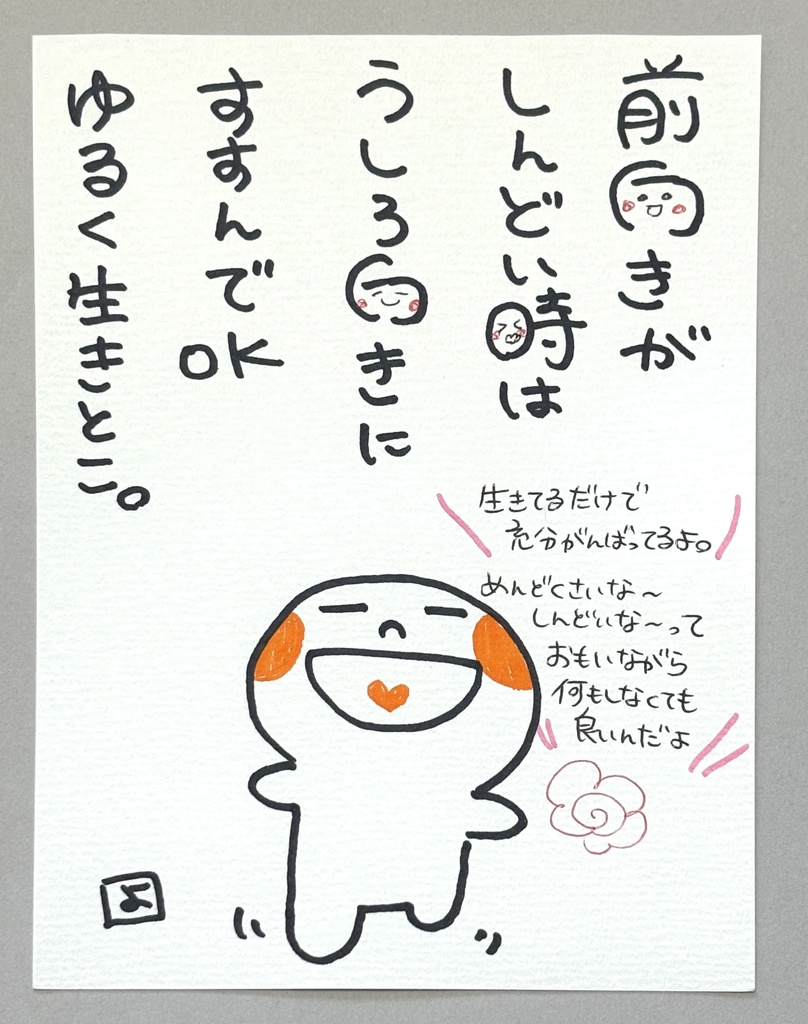 前向きが
しんどい時は
うしろ向きに
すすんで
OK
ゆるく生きとこ。
生きてるだけで
充分がんばってるよ。
めんどくさいな〜
しんどいな〜って
おもいながら
何もしなくても
良いんだよ
よ